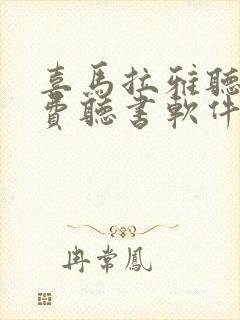 喜馬拉雅聽
費聽書軟件
冉常鳳